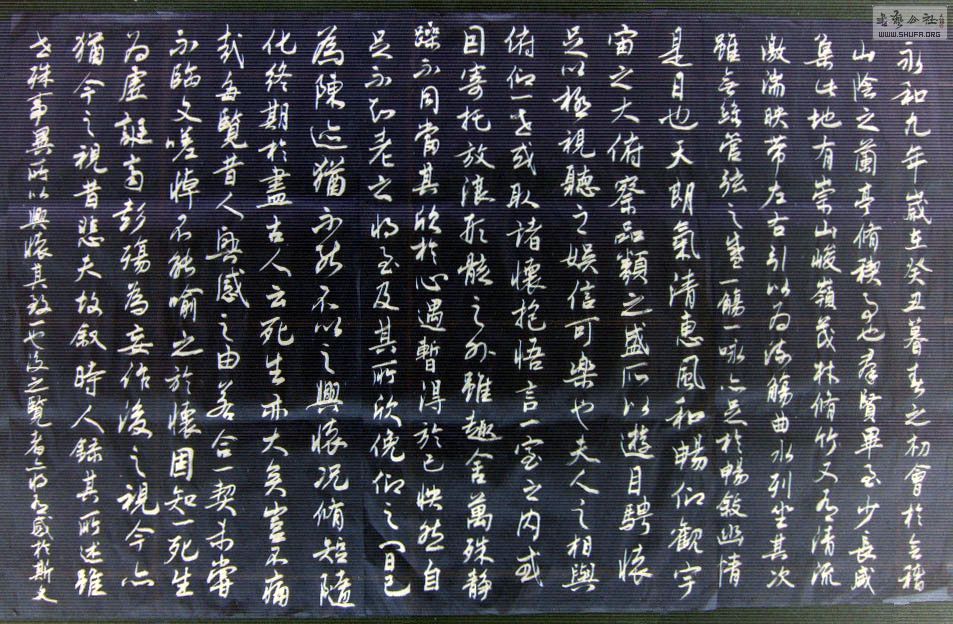 永和九年歲在癸丑暮春之初會於會稽
山陰之蘭亭脩稧事也羣賢畢至少長咸
集此地有崇山峻嶺茂林脩竹又有清流
激湍映帶左右引以為流觴曲水列坐其次
雖無絲管弦之盛一觴一咏亦足於暢敘幽情
是日也天朗氣清惠風和暢仰觀宇
宙之大俯察品類之盛所以遊目騁懷
足以極視聽之娛信可樂也夫人之相與
俯仰一世或取諸懷抱悟言一室之內或
因寄托放浪形骸之外雖趣舍萬殊静
躁不同當其欣於心遇暫得於己怏然自
足不知老之將至及其所欣俛仰之間已
為陳迹猶不能不以之興懷況脩短隨
化終期於盡古人云死生亦大矣豈不痛
哉每覽昔人興感之由若合一契未嘗
不臨文嗟悼不能喻之於懷固知一死生
為虛誕齊彭殤為妄作後之視今亦
猶今之視昔悲夫故敘時人錄其所述雖
世殊事異所以興懷其致一也後之覽者亦將有感於斯文
書藝公社
WWW.SHUFA.ORG